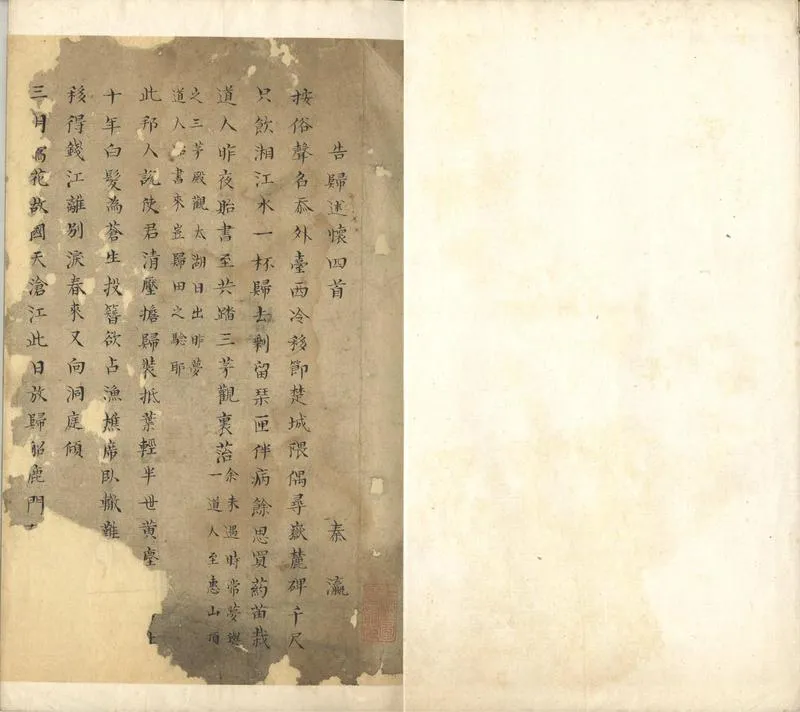 告歸述懷四首 秦瀛
按俗聲名忝外臺西冷移節楚城隈偶尋嶽麓碑千尺
只飲湘江水一杯歸去剩留琹匣伴病餘思買葯苗栽
道人昨夜貽書至共踏三茅觀裏菭
余未遇時常夢與
一道人至惠山頂
之三茅殿觀太湖日出昨夢
道人書來豈歸田之驗耶
此邦人說使君清壓擔歸裝抵葉輕半世黄塵
十年白髮為蒼生投簪欲占漁樵席臥轍難
移得錢江離別淚春來又向洞庭傾
三月花故國天滄江此日放歸船鹿門